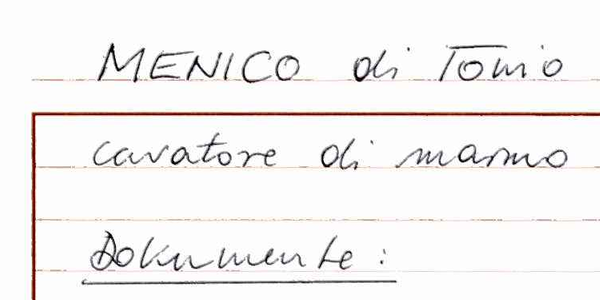 MENICO di Tonio
cavatore di marmo
Dokumente: